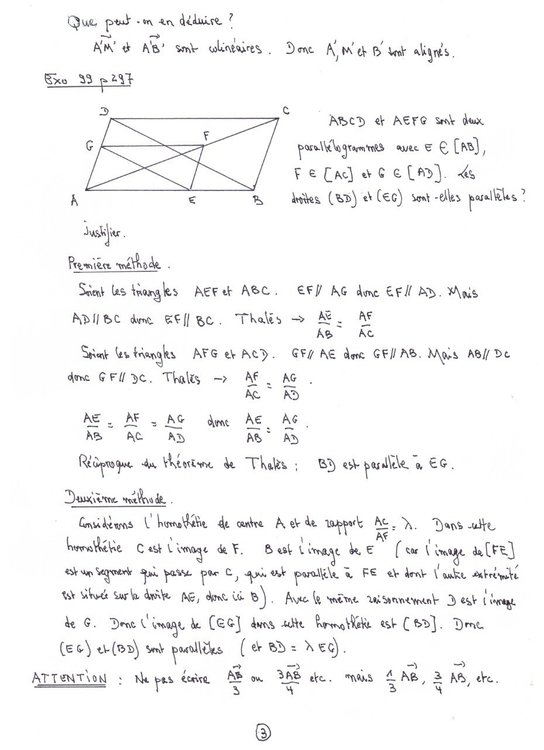 Que peut-on en déduire ?
A'M' et A'B' sont colinéaires. Donc A', M' et B' sont alignés.
Exo 99 p 297
D C
G F
A E B
ABCD et AEFG sont deux
parallélogrammes avec E ∈ [AB],
F ∈ [AC] et G ∈ [AD]. Les
droites (BD) et (EG) sont-elles parallèles ?
Justifier.
Première méthode.
Soient les triangles AEF et ABC. EF // AG donc EF // AD. Mais
AD // BC donc EF // BC. Thalès → AE/AB = AF/AC
Soient les triangles AFG et ACD. GF // AE donc GF // AB. Mais AB // DC
donc GF // DC. Thalès → AF/AC = AG/AD.
AE/AB = AF/AC = AG/AD donc AE/AB = AG/AD.
Réciproque du théorème de Thalès : BD est parallèle à EG.
Deuxième méthode.
Considérons l'homothétie de centre A et de rapport AC/AF = λ. Dans cette
homothétie C est l'image de F. B est l'image de E (car l'image de [FE]
est un segment qui passe par C, qui est parallèle à FE et dont l'autre extrémité
est située sur la droite AE, donc ici B). Avec le même raisonnement D est l'image
de G. Donc l'image de [EG] dans cette homothétie est [BD]. Donc
(EG) et (BD) sont parallèles (et BD = λ EG).
ATTENTION : Ne pas écrire AB/3 ou 3AB/4 etc. mais 1/3 AB, 3/4 AB, etc.
3